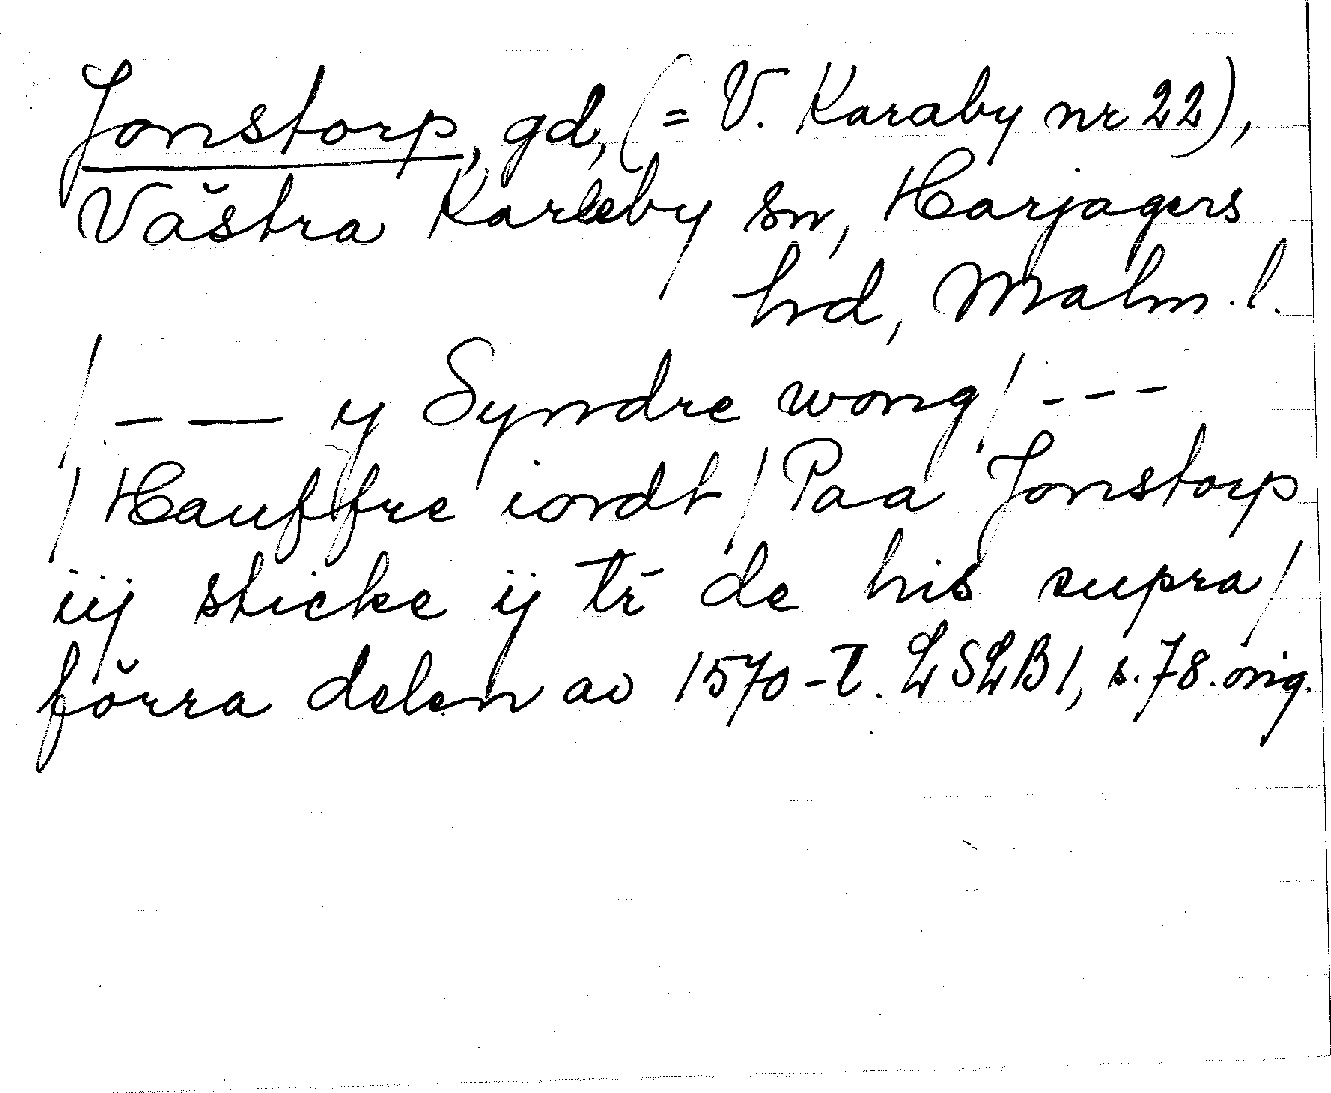 Jonstorp, gd, (= V. Karaby nr 22),
Västra Karleby sn, Harjagers
hrd, Malm. l.
/ – — y Syndre wong / - - -
/ Hauffre iordt / Paa Jonstorp
iij sticke ij tr̄ de his supra /
förra delen av 1570-t. LSLB 1, s. 78. orig.